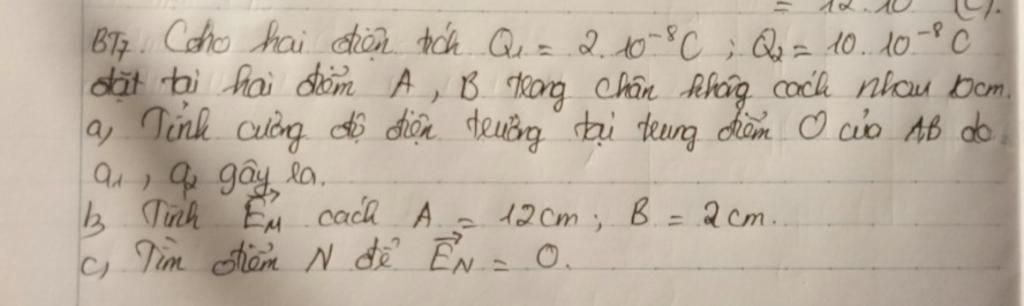 = 12.10 (C).
BT7. Coho hai điện tích Q1 = 2.10⁻⁸C ; Q2 = 10.10⁻⁸C
đặt tại hai điểm A, B trong chân không cách nhau 10cm.
a, Tính cường độ điện trường tại trung điểm O của AB do
q1, q2 gây ra.
b, Tính E⃗M cách A = 12cm ; B = 2cm.
c, Tìm điểm N để E⃗N = 0.